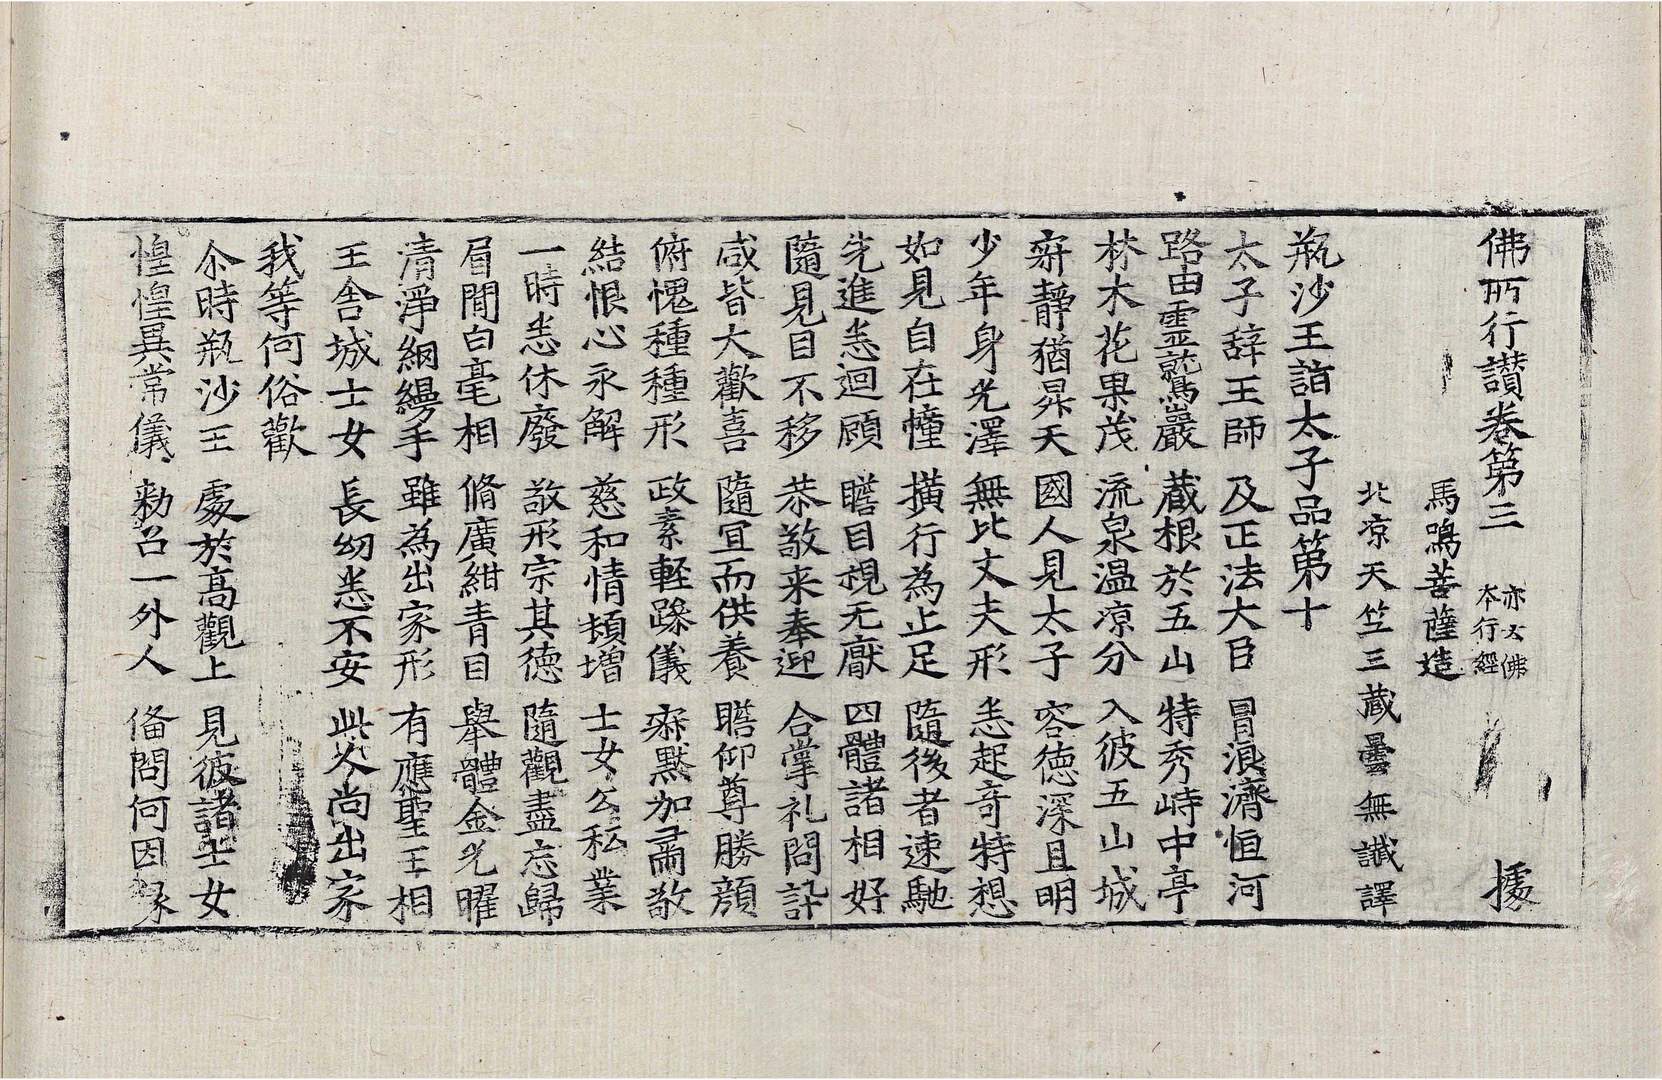 佛所行讃卷第三 亦云佛本行經 㩀
馬鳴菩薩造
北凉天竺三藏曇無讖譯
瓶沙王詣太子品第十
太子辞王師 及正法大臣 冒浪濟恒河
路由靈鷲巖 蔵根於五山 特秀峙中亭
林木花果茂 流泉温凉分 入彼五山城
寂靜猶昇天 國人見太子 容徳深且明
少年身光澤 無比丈夫形 悉起奇特想
如見自在幢 橫行為止足 隨後者速馳
先進悉迴顧 瞻目視无厭 四體諸相好
隨見目不移 恭敬来奉迎 合掌礼問訊
咸皆大歡喜 隨宜而供養 瞻仰尊勝顔
俯愧種種形 政素軽躁儀 寂黙加肅敬
結恨心永解 慈和情頓增 士女公私業
一時悉休廢 敬形宗其徳 隨觀盡忘歸
眉間白毫相 脩廣紺青目 舉體金光曜
清淨網縵手 雖為出家形 有應聖王相
王舍城士女 長幼悉不安 此人尚出家
我等何俗歡
尒時瓶沙王 處於高觀上 見彼諸士女
惶惶異常儀 勑召一外人 偹問何因縁